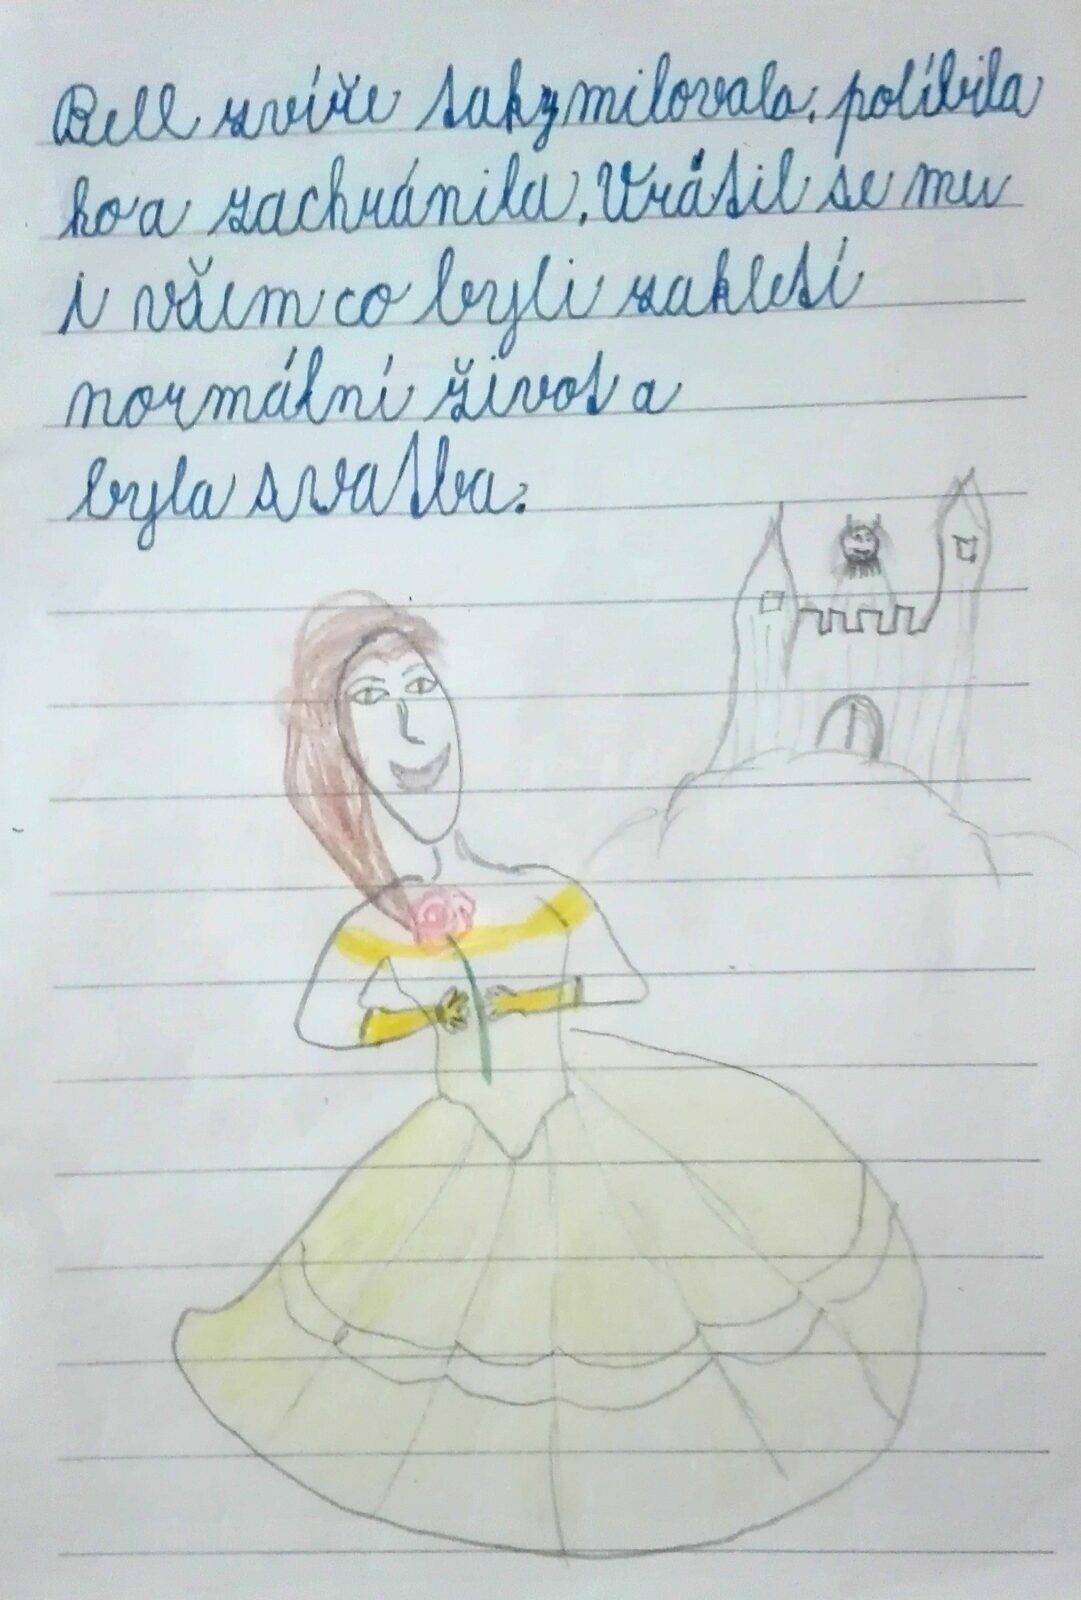 Bell zvíře taky milovala, políbila
ho a zachránila. Vrátil se mu
i všem co byli zakletí
normální život a
byla svatba.